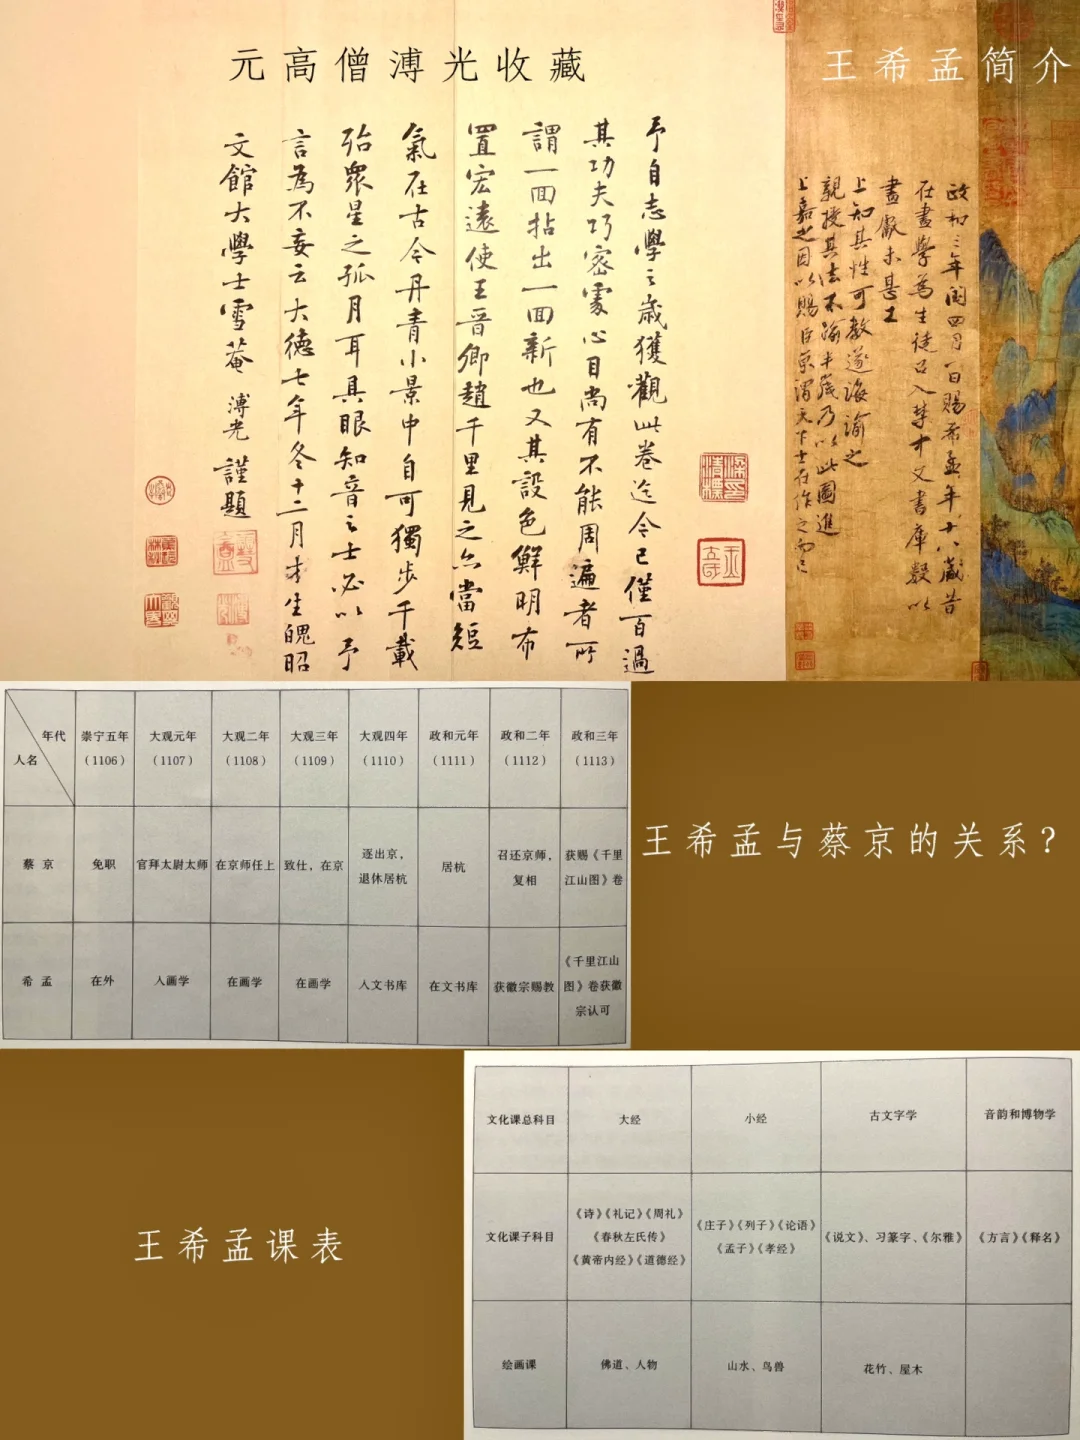 元高僧溥光收藏
王希孟简介
予自志學之歲獲觀此卷迄今已僅百過
其功夫巧密處心目尚有不能周遍者所
謂一面拈出一面新也又其設色鮮明布
置宏遠使王晉卿趙千里見之亦當短
氣在古今丹青小景中自可獨步千載
殆眾星之孤月耳具眼知音之士必以予
言為不妄云大德七年冬十二月才生魄昭
文館大學士雪菴溥光謹題
政和三年閏四月一日賜希孟年十八歲昔
在畫學為生徒召入禁中文書庫數以
畫獻未甚工
上知其性可教遂誨諭之
親授其法不踰半歲乃以此圖進
上嘉之因以賜臣京謂天下士在作之而已
年代
人名
崇宁五年 大观元年 大观二年 大观三年 大观四年 政和元年 政和二年 政和三年
（1106） （1107） （1108） （1109） （1110） （1111） （1112） （1113）
蔡京 免职 官拜太尉太师 在京师任上 致仕，在京 逐出京，退休居杭 居杭 召还京师，复相 获赐《千里江山图》卷
希孟 在外 入画学 在画学 在画学 入文书库 在文书库 获徽宗赐教 《千里江山图》卷获徽宗认可
王希孟与蔡京的关系？
王希孟课表
文化课总科目 大经 小经 古文字学 音韵和博物学
文化课子科目 《诗》《礼记》《周礼》《春秋左氏传》《黄帝内经》《道德经》 《庄子》《列子》《论语》《孟子》《孝经》 《说文》、习篆字、《尔雅》 《方言》《释名》
绘画课 佛道、人物 山水、鸟兽 花竹、屋木